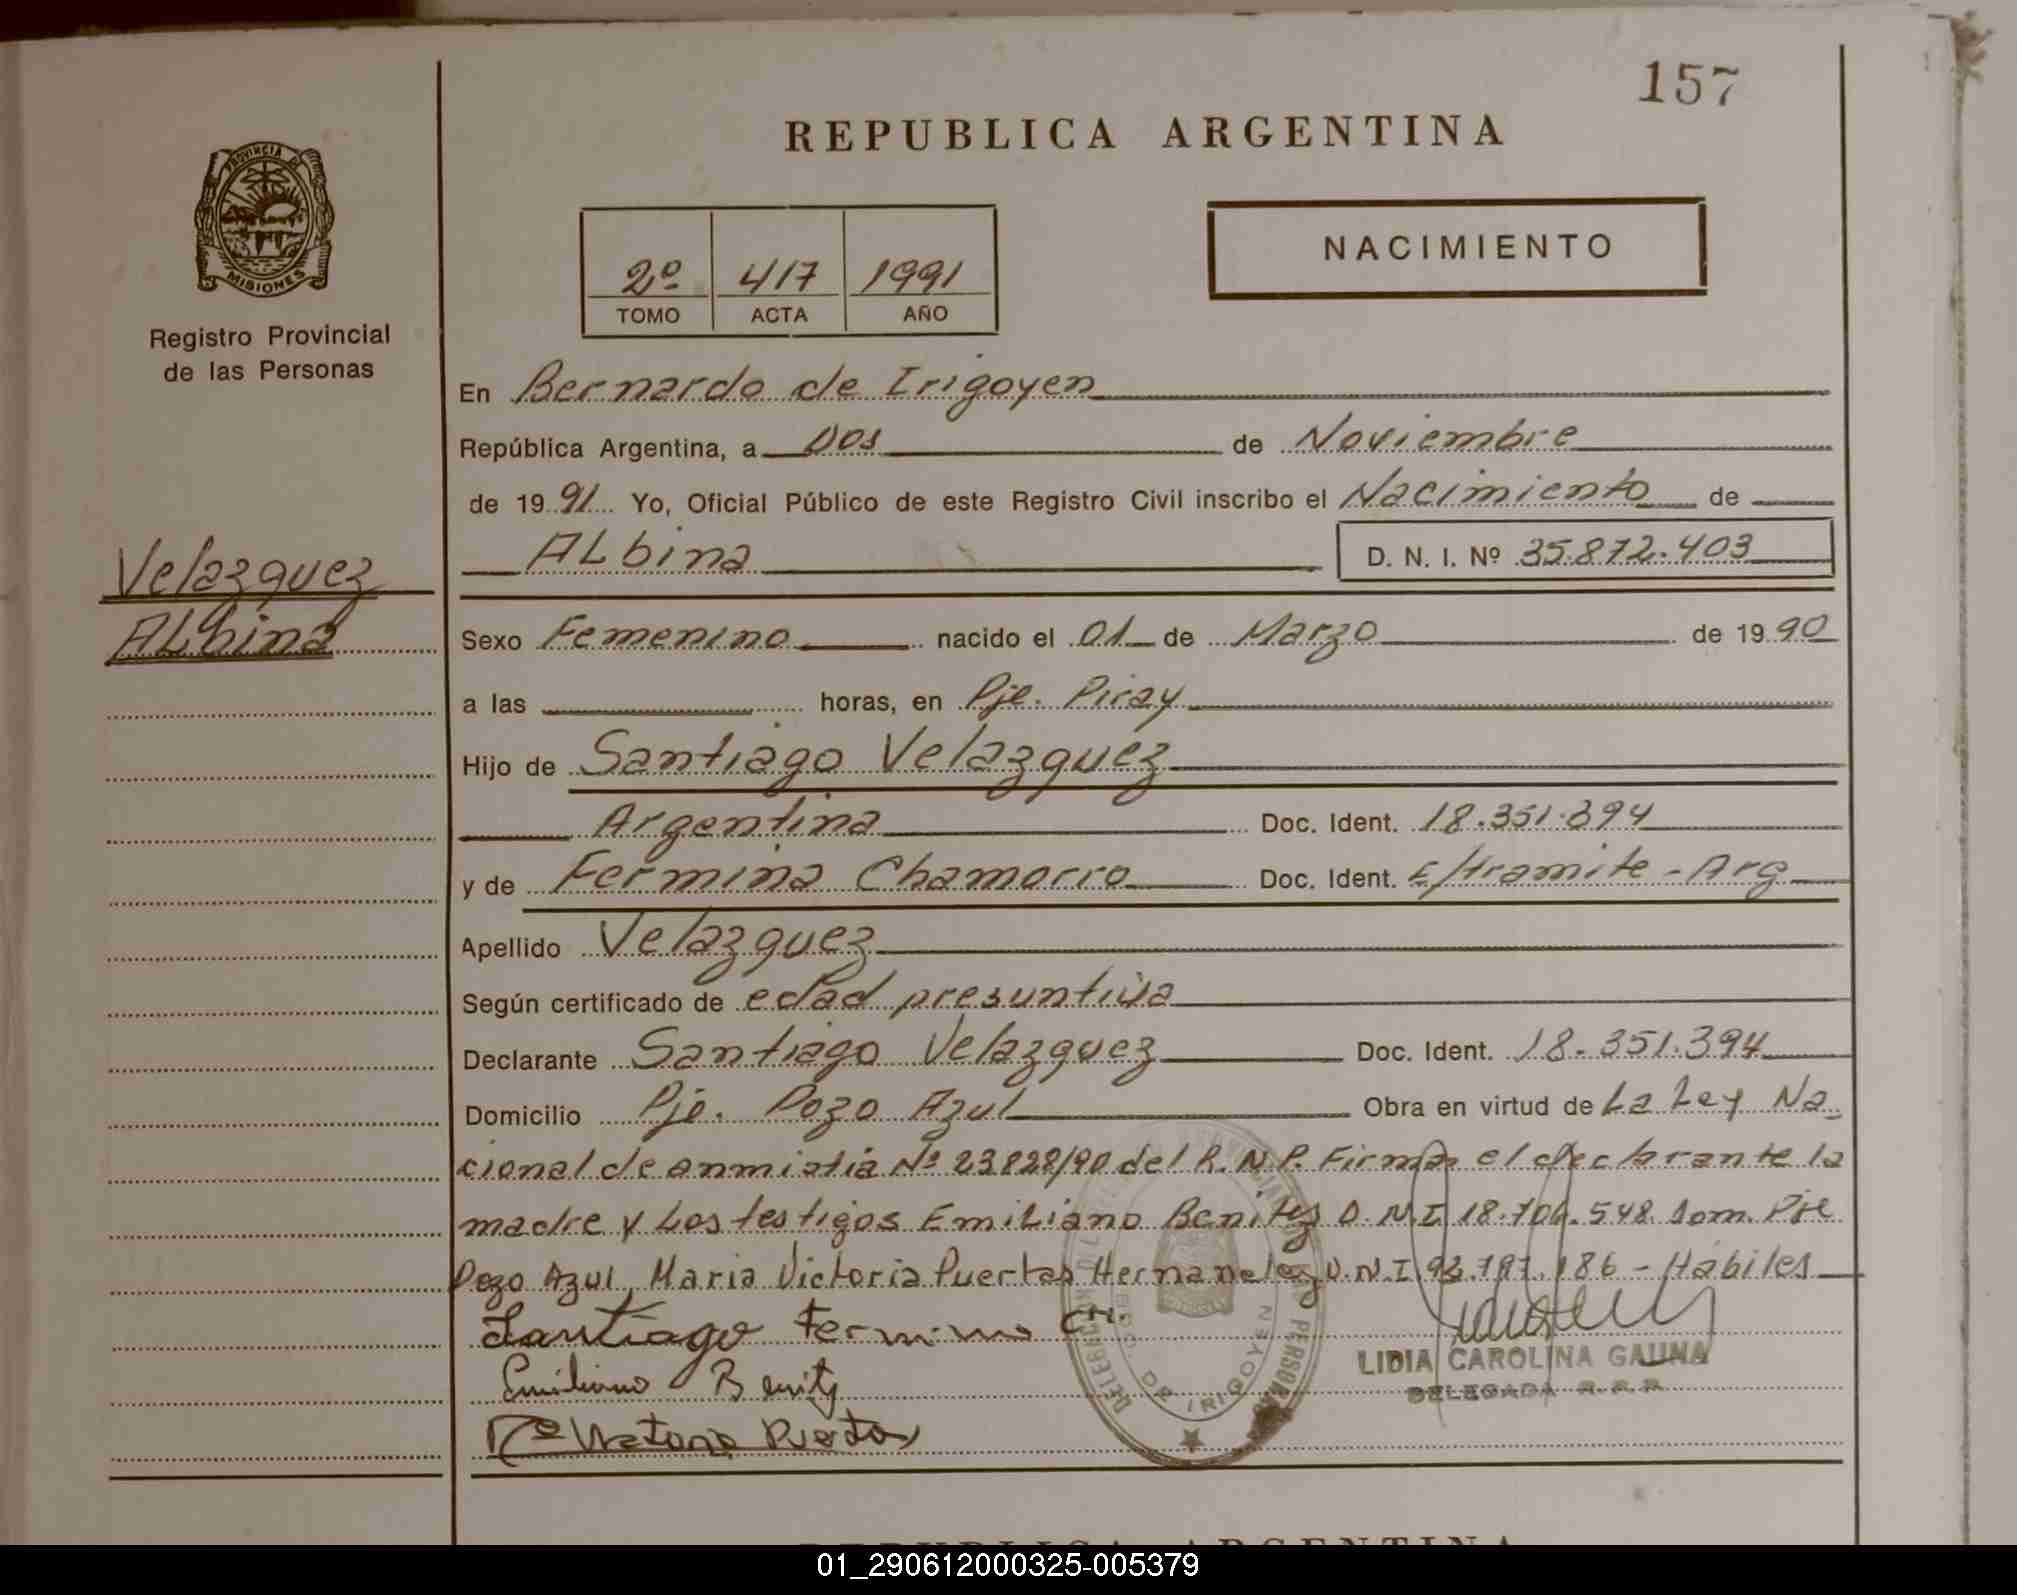 157
REPUBLICA ARGENTINA
PROVINCIA DE
MISIONES
Registro Provincial
de las Personas
2º 417 1991
TOMO ACTA AÑO
NACIMIENTO
En Bernardo de Irigoyen
República Argentina, a Dos de Noviembre
de 1991 Yo, Oficial Público de este Registro Civil inscribo el Nacimiento de
Albina D. N. I. Nº 35.872.403
Velazquez
Albina
Sexo Femenino nacido el 01 de Marzo de 1990
a las horas, en Pje. Piray
Hijo de Santiago Velazquez
Argentina Doc. Ident. 18.351.394
y de Fermina Chamorro Doc. Ident. E/tramite - Arg
Apellido Velazquez
Según certificado de edad presuntiva
Declarante Santiago Velazquez Doc. Ident. 18.351.394
Domicilio Pje. Pozo Azul Obra en virtud de La Ley Na-
cional de anmistia Nº 23828/90 del R.N.P. Firman el declarante la
madre y Los testigos Emiliano Benitez D.N.I. 18.706.548 Dom. Pje
Pozo Azul, Maria Victoria Puertas Hernandez D.N.I. 92.797.186 - Habiles
Santiago Fermina CH.
Emiliano Benitz
Mª Victoria Puertas
LIDIA CAROLINA GAUNA
DELEGADA R.P.P.
BDO. DE IRIGOYEN
REPUBLICA ARGENTINA
01_290612000325-005379